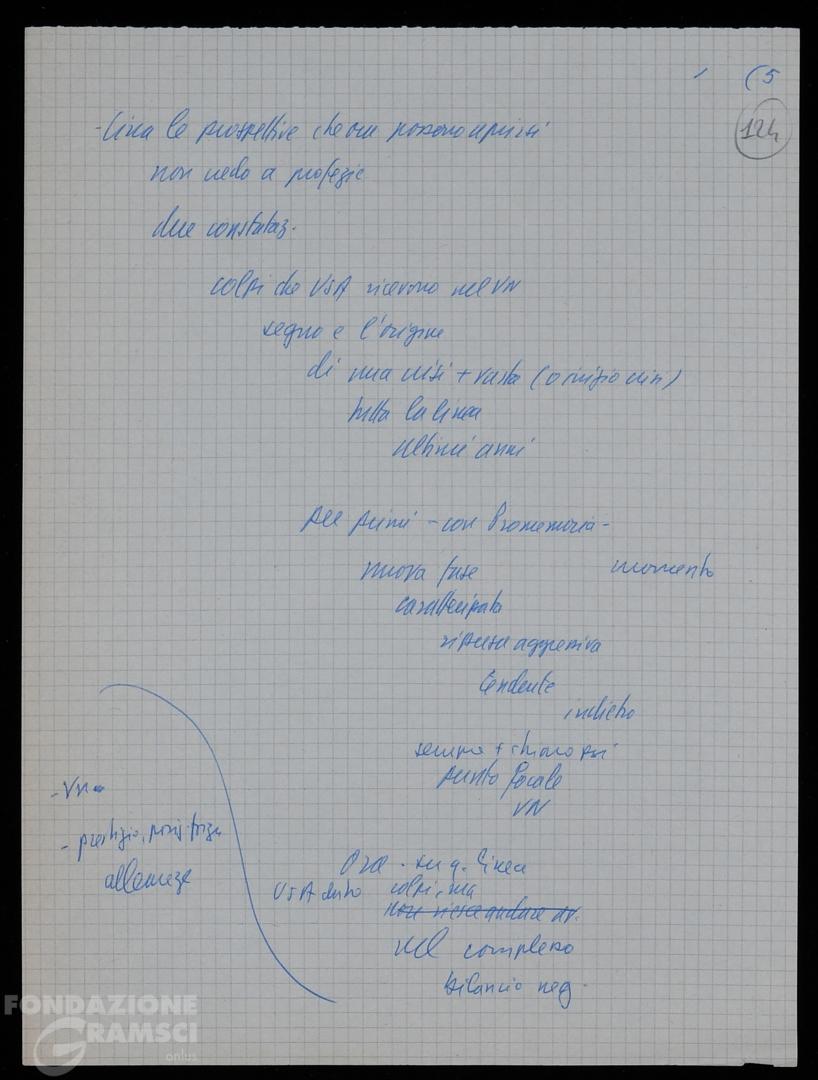 (5
124
- Circa le prospettive che ora possono aprirsi
non credo a profezie
due constataz.
colpi che USA ricevono nel VN
segno e l'origine
di una crisi + vasta (o inizio crisi)
tutta la linea
ultimi anni
per primi - con Promemoria -
nuova fase momento
caratterizzata
ripresa aggressiva
tendente
indietro
sempre + chiaro poi
punto focale
VN
- VN
- prestigio, posiz. forza
alleanze
Ora - su q. linea
USA dato colpi, ma
non riesce andare av.
nel complesso
bilancio neg.
FONDAZIONE
GRAMSCI
onlus